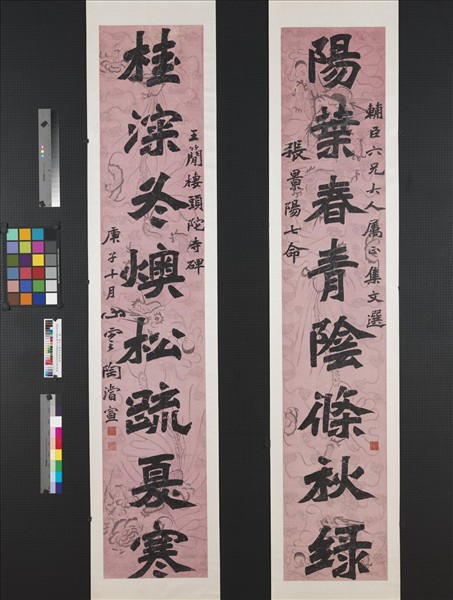 陽葉春青陰條秋綠
輔臣六兄大人屬正集文選
張景陽七命
桂深冬燠松疏夏寒
王簡棲頭陀寺碑
庚子十月心雲陶濬宣